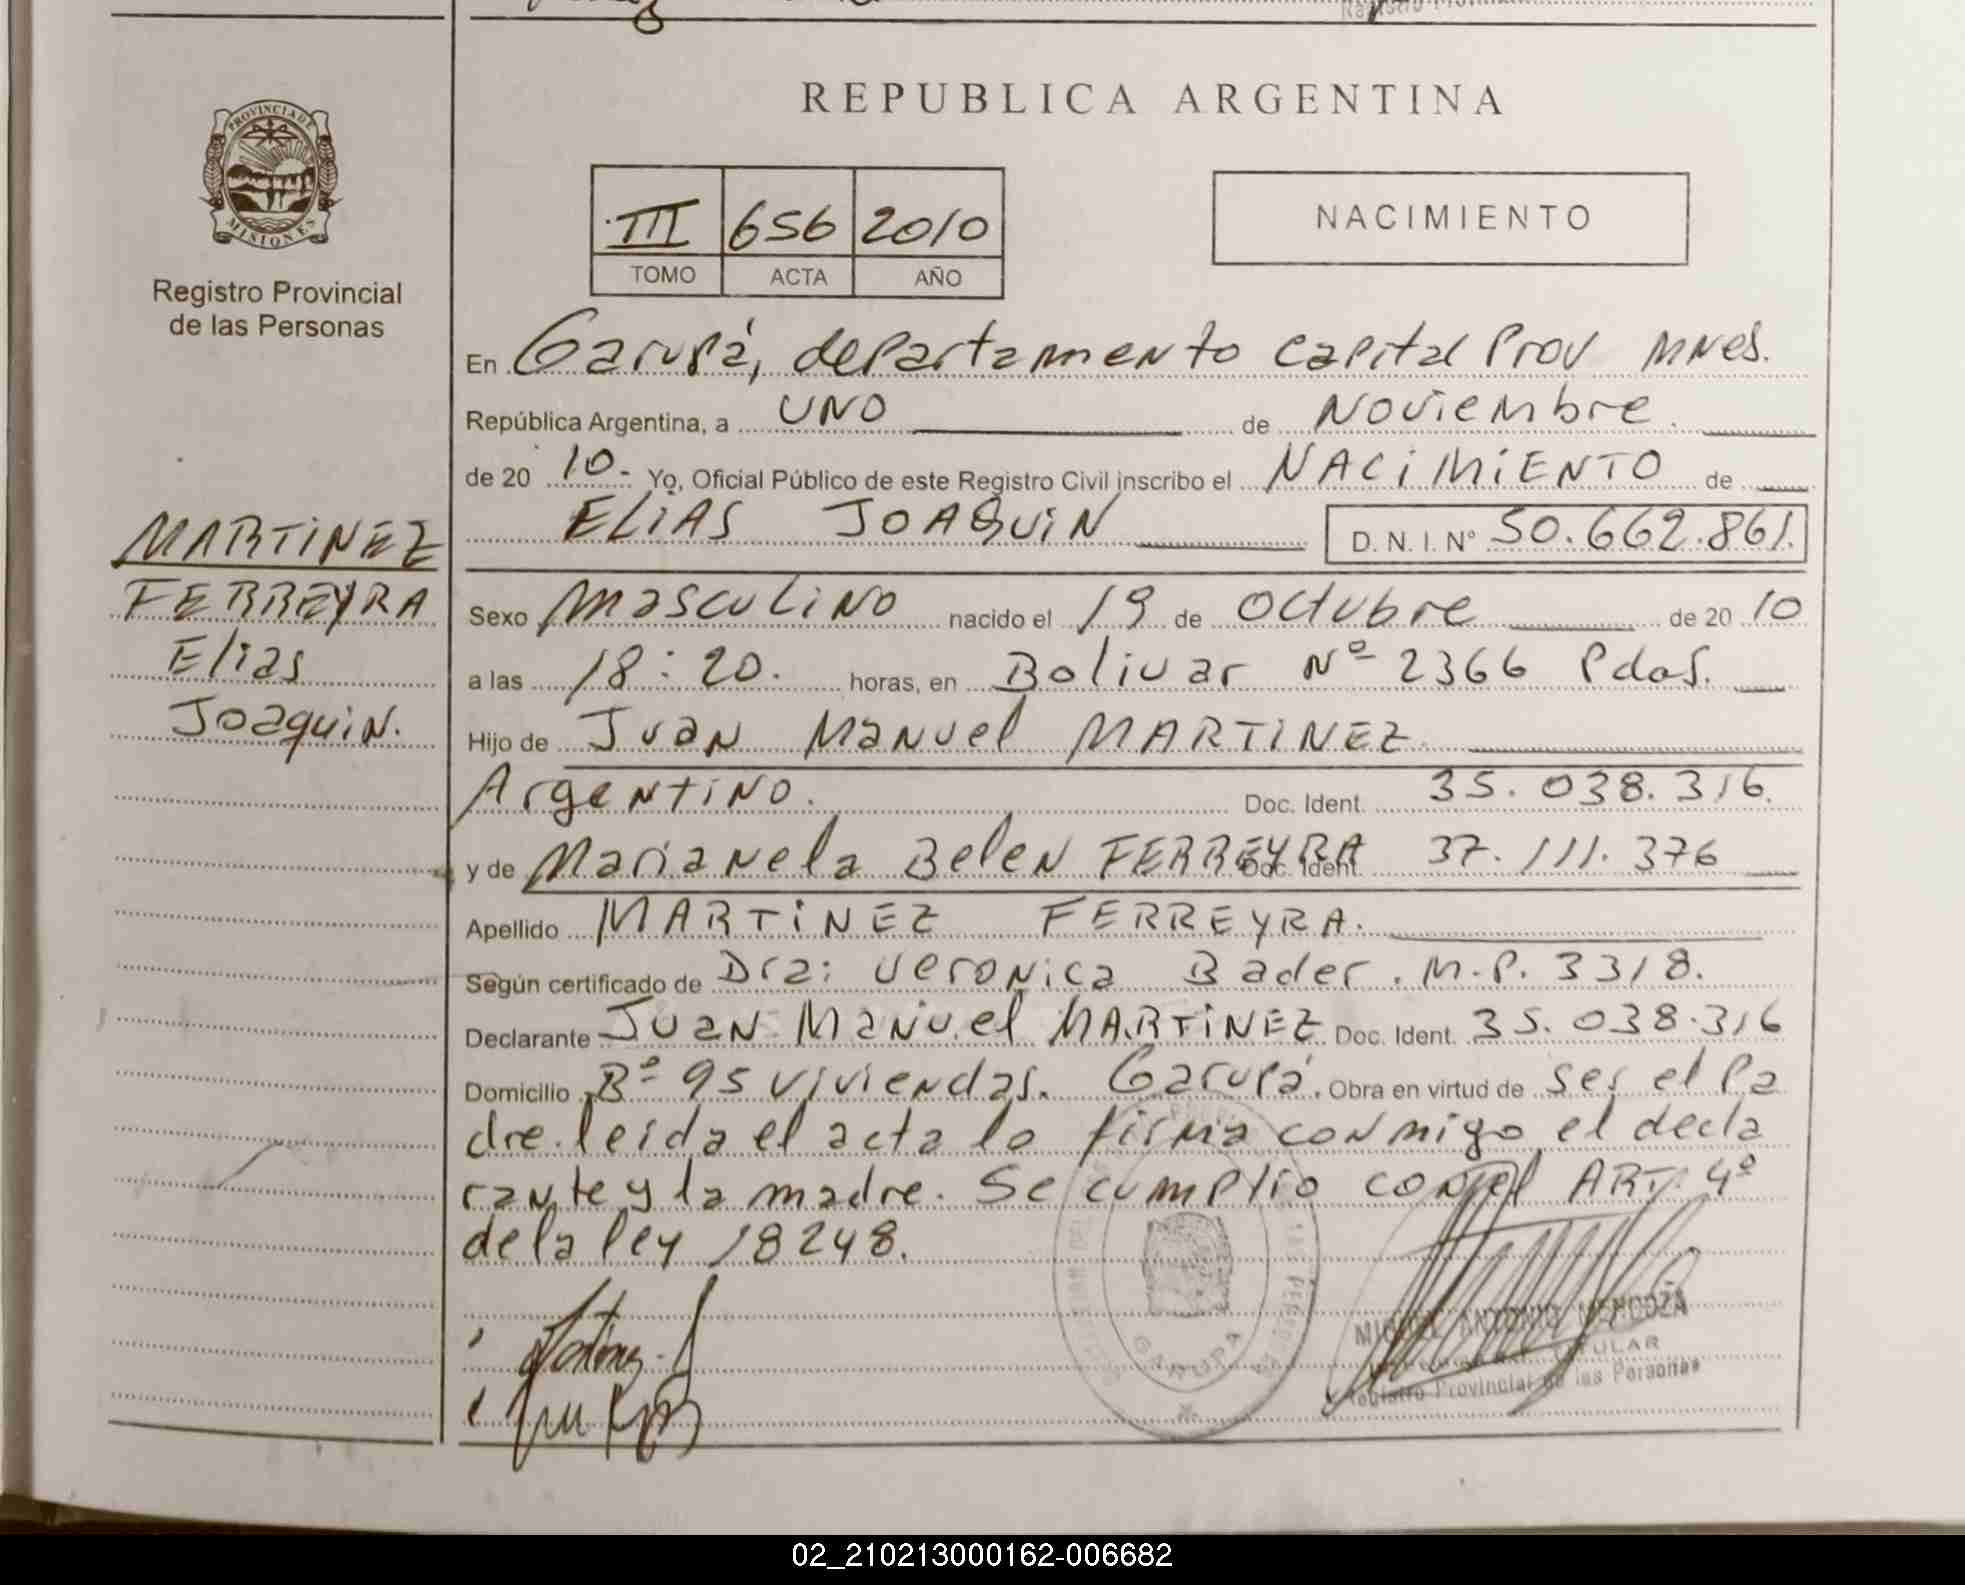 REPUBLICA ARGENTINA
PROVINCIA DE
MISIONES
Registro Provincial
de las Personas
III 656 2010
TOMO ACTA AÑO
NACIMIENTO
En Garupá, departamento capital Prov MNes.
República Argentina, a UNO de Noviembre.
de 20 10. Yo, Oficial Público de este Registro Civil inscribo el NACIMIENTO de
ELIAS JOAQUIN D. N. I. N° 50.662.861.
MARTINEZ
FERREYRA
Elias
Joaquin.
Sexo Masculino nacido el 19 de Octubre de 20 10
a las 18:20. horas, en Bolivar Nº 2366 Pdas.
Hijo de Juan Manuel MARTINEZ
Argentino. Doc. Ident. 35.038.316.
y de Marianela Belen FERREYRA Doc. Ident. 37.111.376
Apellido MARTINEZ FERREYRA.
Según certificado de Dra: Veronica Bader. M.P. 3318.
Declarante Juan Manuel MARTINEZ Doc. Ident. 35.038.316
Domicilio Bº 95 viviendas. Garupá. Obra en virtud de ser el Pa
dre. leida el acta lo firma conmigo el decla
rante y la madre. Se cumplio con el ART. 4º
de la ley 18248.
GARUPA
MIGUEL ANTONIO MENDOZA
TITULAR
Registro Provincial de las Personas
02_210213000162-006682